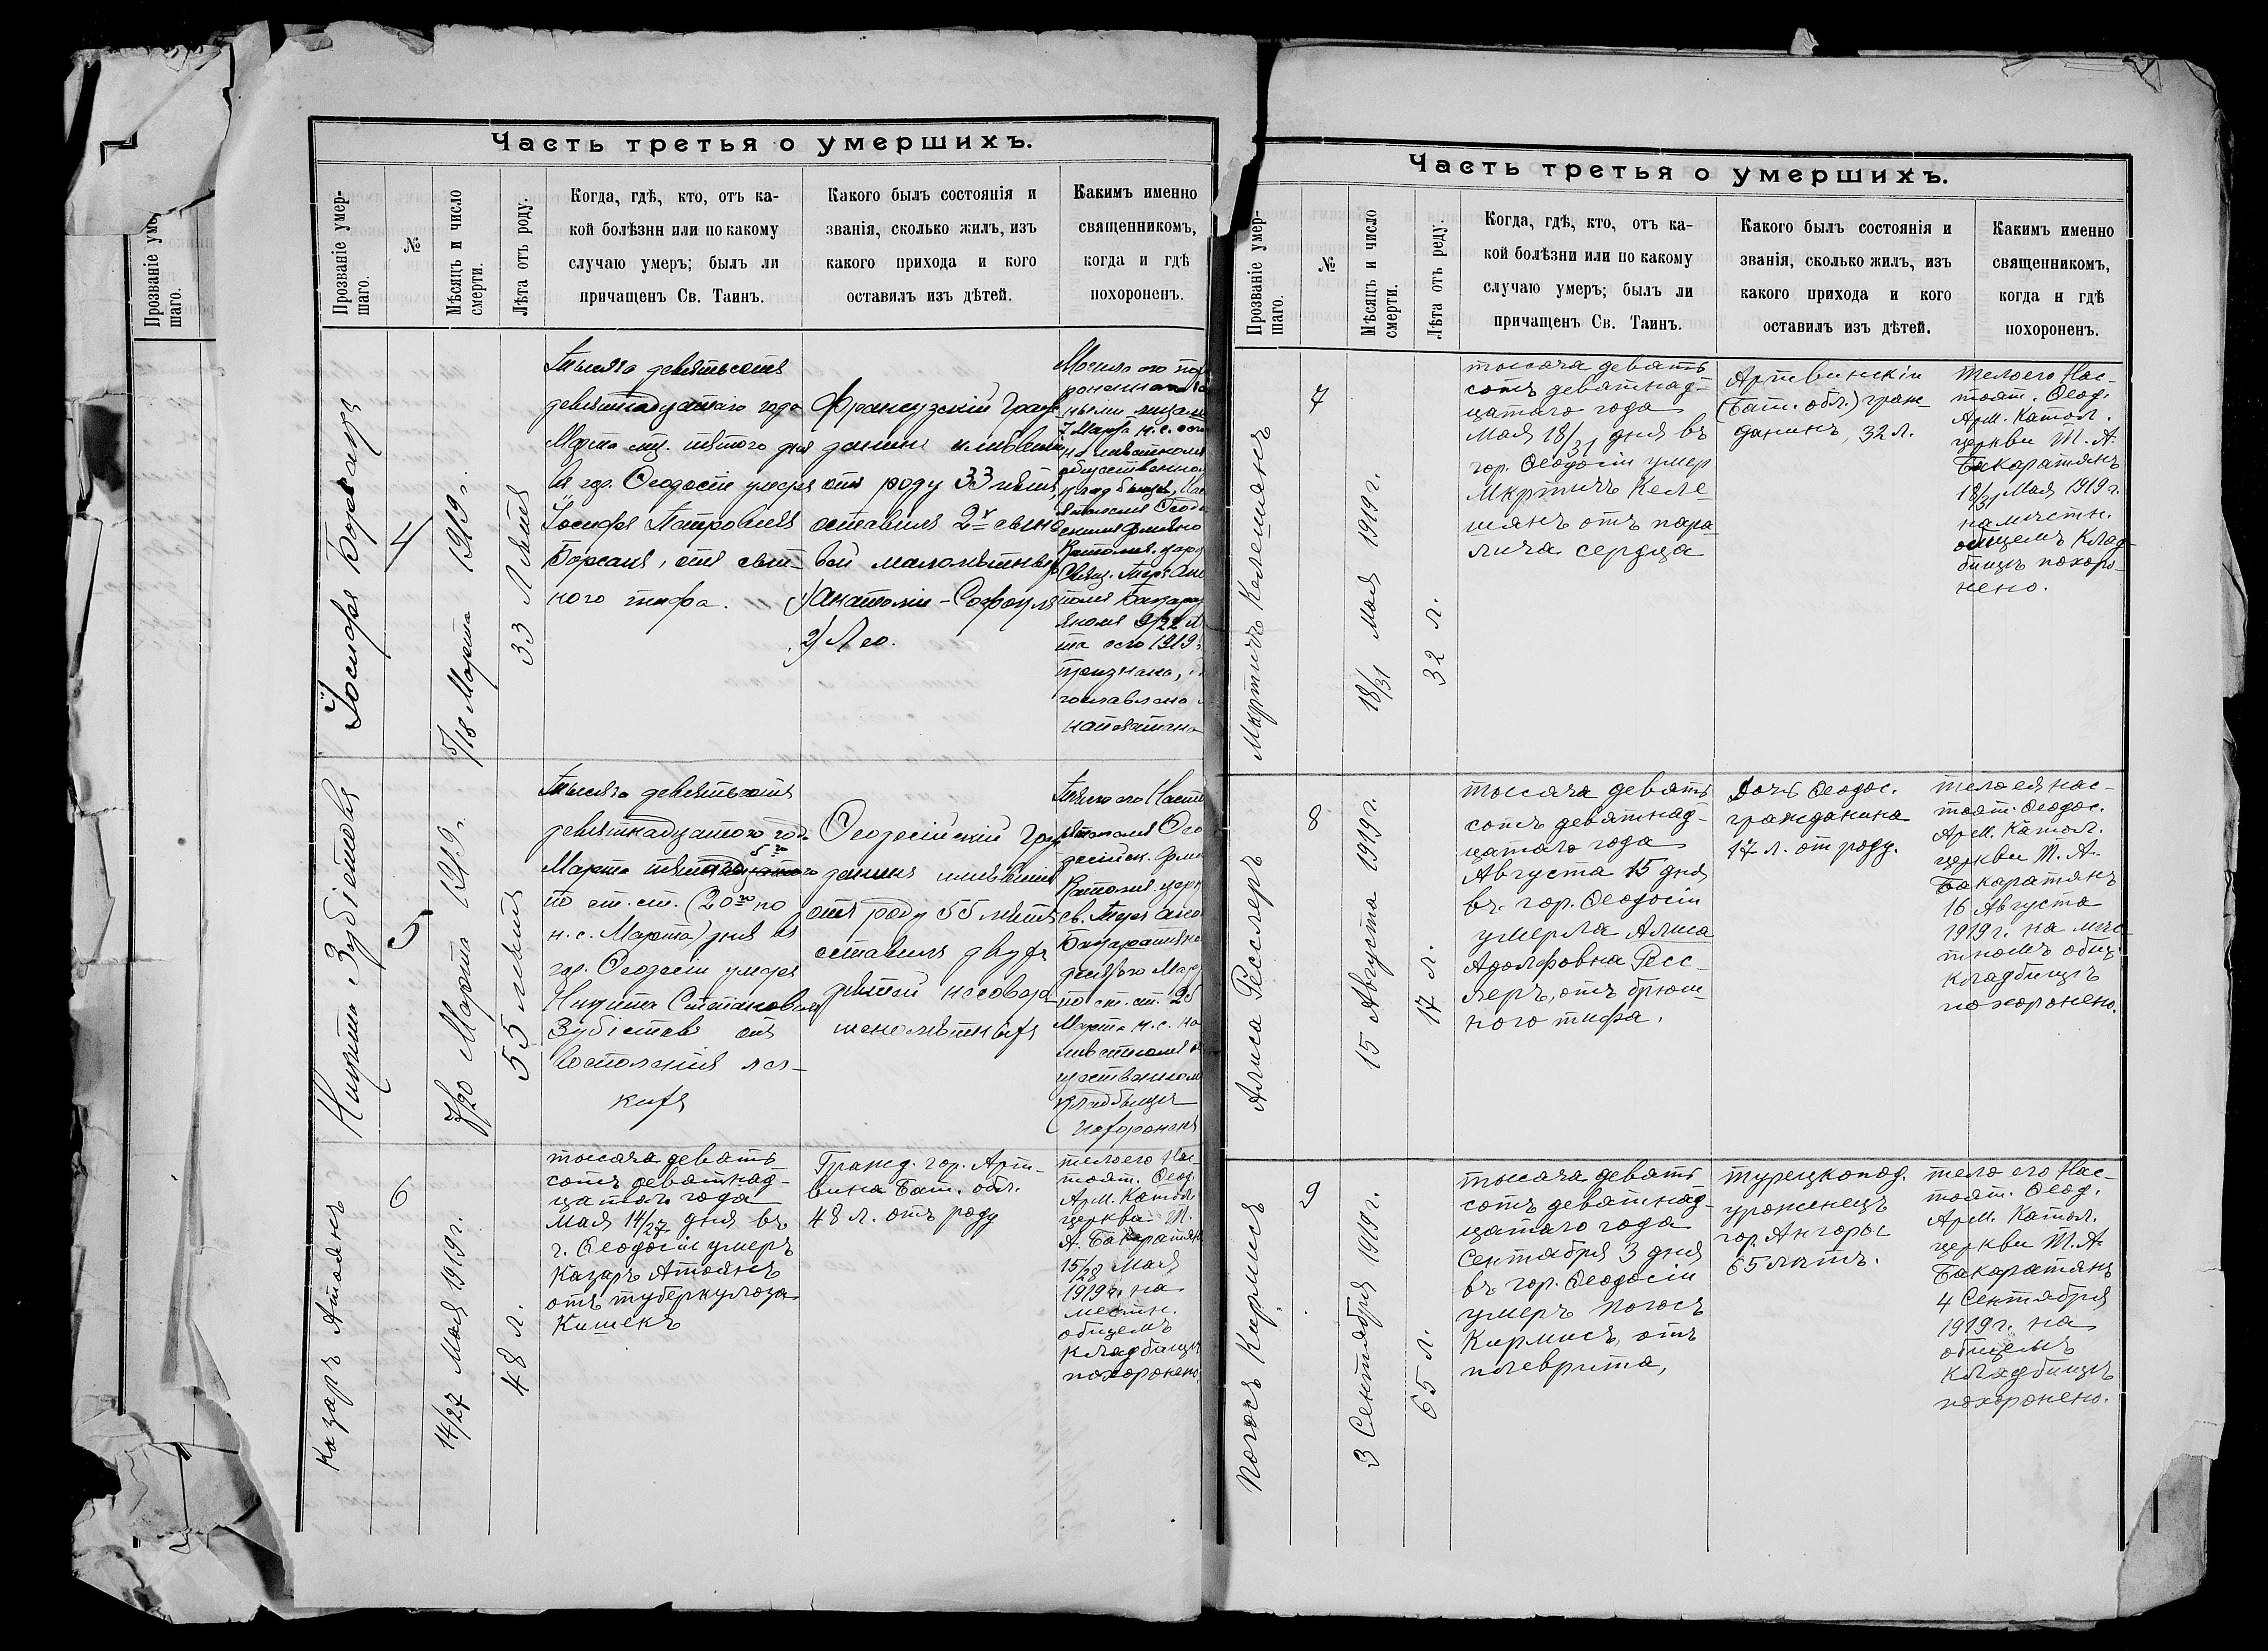 Часть третья о умершихъ.
Прозваніе умер-
шаго.
№
Мѣсяцъ и число
смерти.
Лѣта отъ роду.
Когда, гдѣ, кто, отъ ка-
кой болѣзни или по какому
случаю умеръ; былъ ли
причащенъ Св. Таинъ.
Какого былъ состоянія и
званія, сколько жилъ, изъ
какого прихода и кого
оставилъ изъ дѣтей.
Каким именно
священникомъ,
когда и гдѣ
похороненъ.
Іосифъ
4
5/18 Марта 1919 г.
33 Лѣтъ
Тысяча девятьсотъ
девятнадцатаго года
Марта мѣс. пятого дня
въ гор. Ѳеодосіи умеръ
Іосифъ
отъ сып-
ного тифа.
Французскій граж
данинъ
отъ роду 33 лѣтъ
оставилъ 2хъ сыно
вей малолѣтныхъ
1) Анатолій -
2) Лео.
на мѣстномъ
1919
Никита Зубіетовъ
5
7/20 Марта 1919 г.
55 лѣтъ
Тысяча девятьсотъ
девятнадцатого года
Марта
по ст. ст. (20го по
н. с. Марта) дня въ
гор. Ѳеодосіи умеръ
Никита Степановичъ
Зубіетовъ отъ
воспаленія лег-
кихъ
Ѳеодосійскій граж
данинъ имѣвшій
отъ роду 55 лѣтъ
оставилъ двухъ
дѣтей несовер-
шенолѣтныхъ
Тѣло его Насто
ятелемъ Ѳео
Католич. церк
Марта н. с. на
мѣстномъ
кладбищѣ
похоронено
Казаръ Атоянъ
6
14/27 Мая 1919 г.
48 л.
тысяча девять
сотъ девятнад-
цатаго года
Мая 14/27 дня въ
г. Ѳеодосіи умеръ
Казаръ Атоянъ
отъ туберкулоза
Кишекъ
Гражд. гор. Арт-
вина Бат. обл.
48 л. отъ роду
тело его Нас-
тоят. Ѳеод.
Арм. Катол.
церкви Т.
А. Бакаратянъ
15/28 Мая
1919 г. на
местн.
общемъ
кладбищѣ
похоронено.
Часть третья о умершихъ.
Прозваніе умер-
шаго.
№
Мѣсяцъ и число
смерти.
Лѣта отъ роду.
Когда, гдѣ, кто, отъ ка-
кой болѣзни или по какому
случаю умеръ; былъ ли
причащенъ Св. Таинъ.
Какого былъ состоянія и
званія, сколько жилъ, изъ
какого прихода и кого
оставилъ изъ дѣтей.
Каким именно
священникомъ,
когда и гдѣ
похороненъ.
Мкртичъ Келешянъ
7
18/31 Мая 1919 г.
32 л.
тысяча девять
сотъ девятнад-
цатаго года
Мая 18/31 дня въ
гор. Ѳеодосіи умер
Мкртичъ Келе
шянъ отъ пара
лича сердца
Артвинскіи
(Бат. обл.) граж-
данинъ, 32 л.
Тело его Нас-
тоят. Ѳеод.
Арм. Катол.
церкви Т. А.
Бакаратянъ
18/31 Мая 1919 г.
на местн.
общемъ Клад-
бищѣ похоро-
нено.
Алиса Ресслеръ
8
15 Августа 1919 г.
17 л.
тысяча девять
сотъ девятнад-
цатаго года
Августа 15 дня
въ гор. Ѳеодосіи
умерла Алиса
Адольфовна Ресс-
леръ, отъ брюш-
ного тифа.
Дочь Ѳеодос.
гражданина
17 л. от роду.
тело ея нас-
тоят. Ѳеодос.
Арм. Катол.
церкви Т. А.
Бакаратянъ
16 Августа
1919 г. на мѣс-
тномъ общ.
кладбищѣ
похоронено.
Погосъ Кирмисъ
9
3 Сентября 1919 г.
65 л.
тысяча девять
сотъ девятнад-
цатаго года
Сентября 3 дня
въ гор. Ѳеодосіи
умеръ Погосъ
Кирмисъ, отъ
плеврита,
турецкопод.
уроженецъ
гор. Ангоры
65 лѣтъ.
тело его Нас-
тоят. Ѳеод.
Арм. Катол.
церкви Т. А.
Бакаратянъ
4 Сентября
1919 г. на
общемъ
кладбищѣ
похоронено.